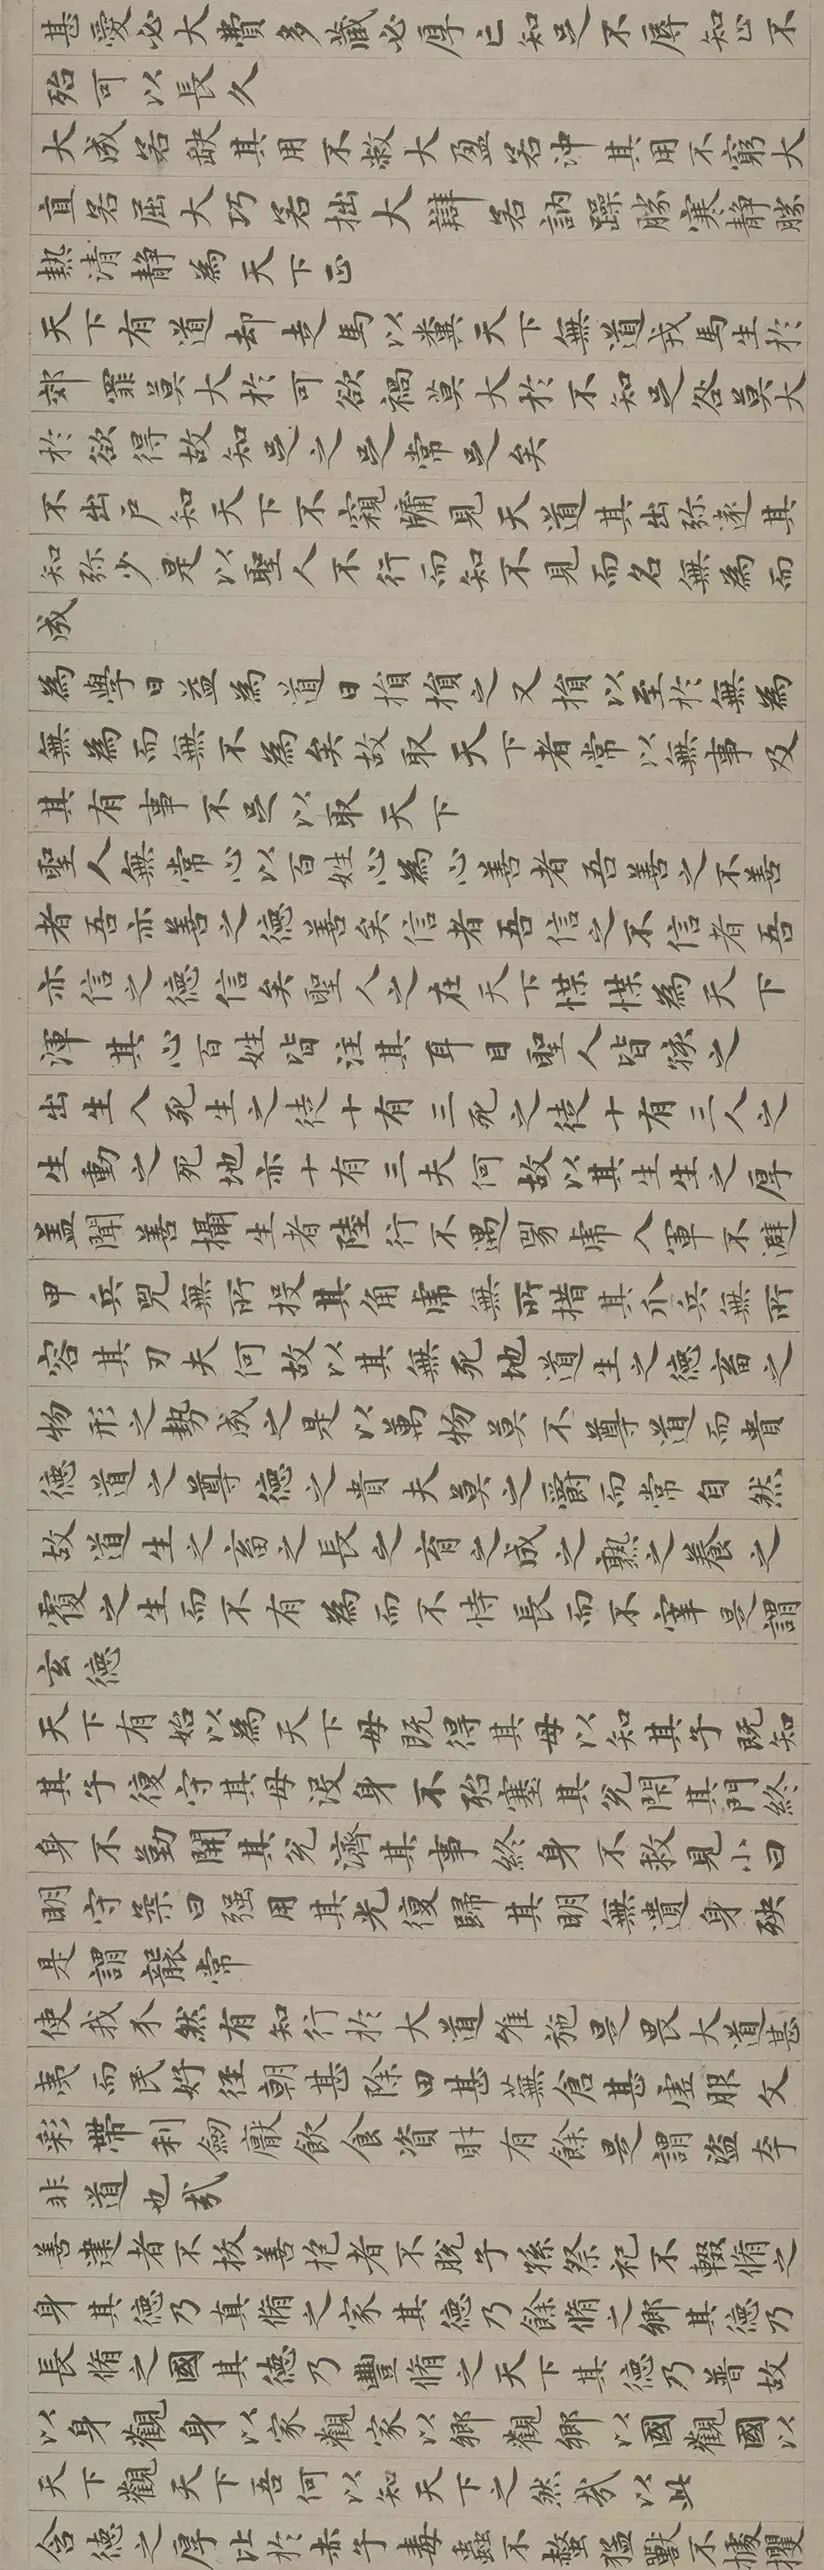 甚愛必大費多藏必厚亡知足不辱知止不
殆可以長久
大成若缺其用不敝大盈若沖其用不窮大
直若屈大巧若拙大辯若訥躁勝寒靜勝
熱清靜為天下正
天下有道却走馬以糞天下無道戎馬生於
郊罪莫大於可欲禍莫大於不知足咎莫大
於欲得故知足之足常足矣
不出戶知天下不窺牖見天道其出弥遠其
知弥少是以聖人不行而知不見而名無為而
成
為學日益為道日損損之又損以至於無為
無為而無不為矣故取天下者常以無事及
其有事不足以取天下
聖人無常心以百姓心為心善者吾善之不善
者吾亦善之德善矣信者吾信之不信者吾
亦信之德信矣聖人之在天下惵惵為天下
渾其心百姓皆注其耳目聖人皆孩之
出生入死生之徒十有三死之徒十有三人之
生動之死地亦十有三夫何故以其生生之厚
盖聞善攝生者陸行不遇兕虎入軍不避
甲兵兕無所投其角虎無所措其爪兵無所
容其刃夫何故以其無死地道生之德畜之
物形之勢成之是以萬物莫不尊道而貴
德道之尊德之貴夫莫之爵而常自然
故道生之畜之長之育之成之熟之養之
覆之生而不有為而不恃長而不宰是謂
玄德
天下有始以為天下母既得其母以知其子既知
其子復守其母没身不殆塞其兌閇其門終
身不勤開其兌濟其事終身不救見小曰
明守柔曰强用其光復歸其明無遺身殃
是謂襲常
使我介然有知行於大道唯施是畏大道甚
夷而民好徑朝甚除田甚蕪倉甚虛服文
彩帶利劒厭飲食資財有餘是謂盜夸
非道也㢤
善建者不拔善抱者不脫子孫祭祀不輟脩之
身其德乃真脩之家其德乃餘脩之鄉其德乃
長脩之國其德乃豐脩之天下其德乃普故
以身觀身以家觀家以鄉觀鄉以國觀國以
天下觀天下吾何以知天下之然㢤以此
含德之厚比於赤子毒蟲不螫猛獸不據攫